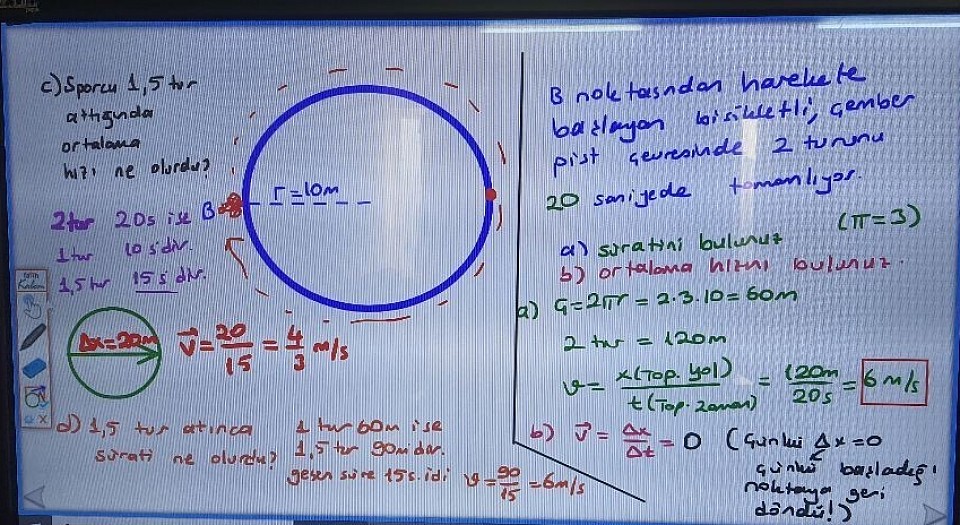 c) Sporcu 1,5 tur
attığında
ortalama
hızı ne olurdu?
2 tur 20s ise
1 tur 10 s'dir.
1,5 tur 15 s dir.
B
r=10m
Δx=20m
v⃗=20/15=4/3 m/s
d) 1,5 tur atınca
sürati ne olurdu?
1 tur 60m ise
1,5 tur 90m dir.
geçen süre 15s. idi v=90/15=6m/s
B noktasından harekete
başlayan bisikletli, çember
pist çevresinde 2 turunu
20 saniyede tamamlıyor.
(π=3)
a) süratini bulunuz
b) ortalama hızını bulunuz.
a) Ç=2πr=2.3.10=60m
2 tur = 120m
v= x(Top. yol)/t(Top. zaman) = 120m/20s = 6m/s
b) v⃗ = Δx/Δt = 0 (Çünkü Δx=0
çünkü başladığı
noktaya geri
döndü!)